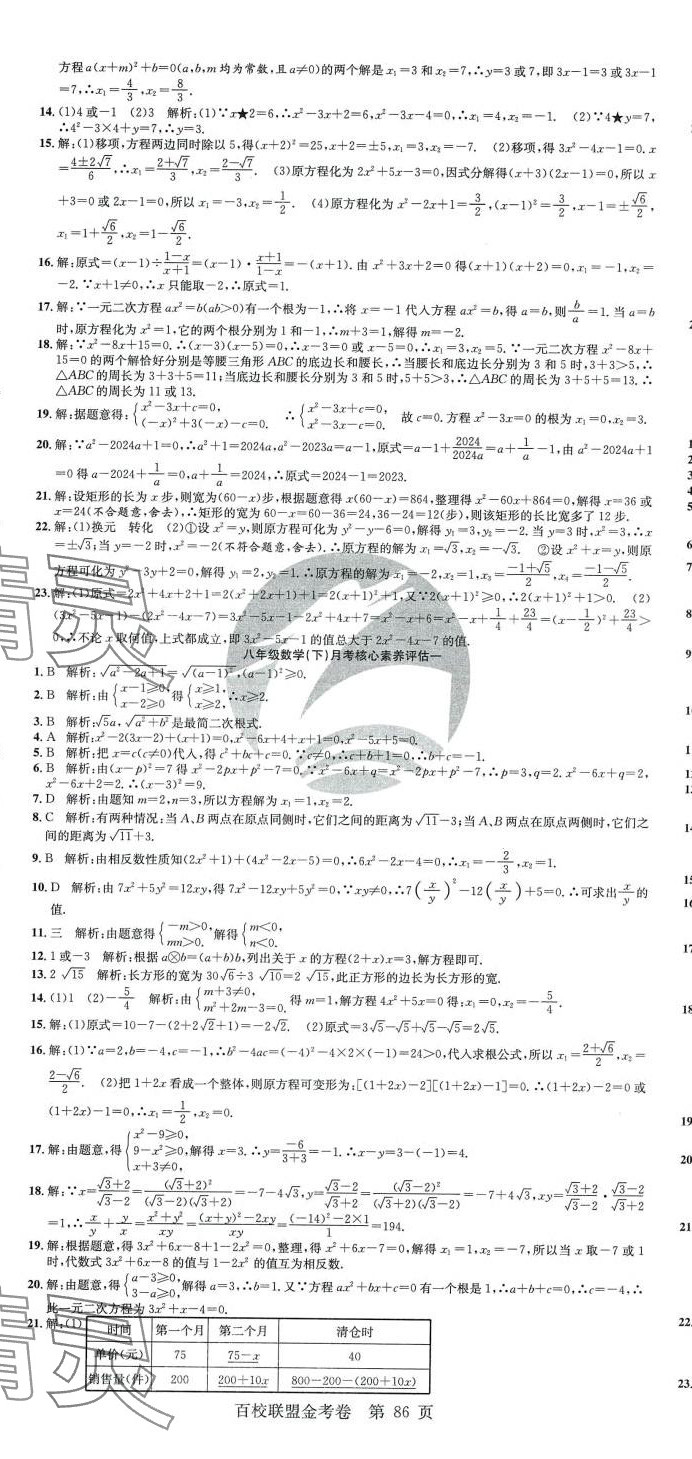 方程a(x+m)²+b=0(a,b,m均为常数,且a≠0)的两个解是x₁=3和x₂=7,∴y=3或7,即3x-1=3或3x-1
=7,∴x₁=4/3,x₂=8/3.
14.(1)4或-1 (2)3 解析:(1)∵x★2=6,∴x²-3x+2=6,x²-3x-4=0,∴x₁=4,x₂=-1. (2)∵4★y=7,
∴4²-3×4+y=7,∴y=3.
15.解:(1)移项,方程两边同时除以5,得(x+2)²=25,x+2=±5,x₁=3,x₂=-7. (2)移项,得3x²-4x-1=0.x
=(4±2√7)/6,∴x₁=(2+√7)/3,x₂=(2-√7)/3. (3)原方程化为2x²+5x-3=0,因式分解得(x+3)(2x-1)=0,所以x
+3=0或2x-1=0,所以x₁=-3,x₂=1/2. (4)原方程化为x²-2x+1=3/2,(x-1)²=3/2,x-1=±√6/2,
x₁=1+√6/2,x₂=1-√6/2.
16.解:原式=(x-1)÷(1-x)/(x+1)=(x-1)·(x+1)/(1-x)=-(x+1).由x²+3x+2=0得(x+1)(x+2)=0,x₁=-1,x₂=
-2.∵x+1≠0,∴x只能取-2,∴原式=1.
17.解:∵一元二次方程ax²=b(ab>0)有一个根为-1,∴将x=-1代入方程ax²=b,得a=b,则b/a=1.当a=b
时,原方程化为x²=1,它的两个根分别为1和-1,∴m+3=1,解得m=-2.
18.解:∵x²-8x+15=0.∴(x-3)(x-5)=0,∴x-3=0或x-5=0,∴x₁=3,x₂=5.∵一元二次方程x²-8x+
15=0的两个解恰好分别是等腰三角形ABC的底边长和腰长,∴当腰长和底边长分别为3和5时,3+3>5,∴
△ABC的周长为3+3+5=11;当底边长和腰长分别为3和5时,5+5>3,∴△ABC的周长为3+5+5=13.∴
△ABC的周长为11或13.
19.解:据题意得:{x²-3x+c=0, (-x)²+3(-x)-c=0. ∴{x²-3x+c=0, x²-3x-c=0. 故c=0.方程x²-3x=0的根为x₁=0,x₂=3.
20.解:∵a²-2024a+1=0,∴a²+1=2024a,a²-2023a=a-1,原式=a-1+2024/2024a=a+1/a-1,由a²-2024a+1
=0得a-2024+1/a=0,a+1/a=2024,∴原式=2024-1=2023.
21.解:设矩形的长为x步,则宽为(60-x)步,根据题意得x(60-x)=864,整理得x²-60x+864=0,解得x=36或
x=24(不合题意,舍去),∴矩形的宽为60-x=60-36=24,36-24=12(步),则该矩形的长比宽多了12步.
22.解:(1)换元 转化 (2)①设x²=y,则原方程可化为y²-y-6=0,解得y₁=3,y₂=-2.当y=3时,x²=3,∴x
=±√3;当y=-2时,x²=-2(不符合题意,舍去).∴原方程的解为x₁=√3,x₂=-√3. ②设x²+x=y,则原
方程可化为y²-3y+2=0,解得y₁=2,y₂=1.∴原方程的解为x₁=-2,x₂=1,x₃=(-1+√5)/2,x₄=(-1-√5)/2.
23.解:(1)原式=2x²+4x+2+1=2(x²+2x+1)+1=2(x+1)²+1,又∵2(x+1)²≥0,∴2(x+1)²+1>0. (2)
(3x²-5x-1)-(2x²-4x-7)=3x²-5x-1-2x²+4x+7=x²-x+6=x²-x+1/4+23/4=(x-1/2)²+23/4>
0,∴不论x取何值,上式都成立,即3x²-5x-1的值总大于2x²-4x-7的值.
八年级数学(下)月考核心素养评估一
1.B 解析:√(a²-2a+1)=√(a-1)²,(a-1)²≥0.
2.B 解析:由{x-1≥0, x-2≥0 得{x≥1, x≥2, ∴x≥2.
3.B 解析:√5a,√(a²+b²)是最简二次根式.
4.A 解析:x²-2(3x-2)+(x+1)=0,x²-6x+4+x+1=0,x²-5x+5=0.
5.B 解析:把x=c(c≠0)代入,得c²+bc+c=0.∵c≠0,∴c+b+1=0,∴b+c=-1.
6.B 解析:由(x-p)²=7得x²-2px+p²-7=0.∵x²-6x+q=x²-2px+p²-7,∴p=3,q=2.x²-6x+q=2,
x²-6x+2=2.∴(x-3)²=9.
7.D 解析:由题知m=2,n=3,所以方程解为x₁=1,x₂=2.
8.C 解析:有两种情况:当A、B两点在原点同侧时,它们之间的距离为√11-3;当A、B两点在原点两侧时,它们之
间的距离为√11+3.
9.B 解析:由相反数性质知(2x²+1)+(4x²-2x-5)=0,∴6x²-2x-4=0,∴x₁=-2/3,x₂=1.
10.D 解析:由7x²+5y²=12xy,得7x²-12xy+5y²=0,∵xy≠0,∴7(x/y)²-12(x/y)+5=0.∴可求出x/y的
值.
11.三 解析:由题意得{-m>0, mn>0. 解得{m<0, n<0.
12.1或-3 解析:根据a⊗b=(a+b)b,列出关于x的方程(2+x)x=3,解方程即可.
13.2√15 解析:长方形的宽为30√6÷3√10=2√15,此正方形的边长为长方形的宽.
14.(1)1 (2)-5/4 解析:由{m+3≠0, m²+2m-3=0. 得m=1,解方程4x²+5x=0得:x₁=0,x₂=-5/4.
15.解:(1)原式=10-7-(2+2√2+1)=-2√2. (2)原式=3√5-√5+√5-√5=2√5.
16.解:(1)∵a=2,b=-4,c=-1,∴b²-4ac=(-4)²-4×2×(-1)=24>0,代入求根公式,所以x₁=(2+√6)/2,x₂=
(2-√6)/2. (2)把1+2x看成一个整体,则原方程可变形为:[(1+2x)-2][(1+2x)-1]=0.∴(1+2x)-2=0或
(1+2x)-1=0,∴x₁=1/2,x₂=0.
17.解:由题意,得{x²-9≥0, 9-x²≥0, x+3≠0, 解得x=3.∴y=-6/(3+3)=-1.∴x-y=3-(-1)=4.
18.解:∵x=(√3+2)/(√3-2)=(√3+2)²/(√3-2)(√3+2)=-7-4√3,y=(√3-2)/(√3+2)=(√3-2)²/(√3+2)(√3-2)=-7+4√3,xy=(√3+2)/(√3-2)·(√3-2)/(√3+2)
=1,∴x/y+y/x=(x²+y²)/xy=((x+y)²-2xy)/xy=((-14)²-2×1)/1=194.
19.解:根据题意,得3x²+6x-8+1-2x²=0,整理,得x²+6x-7=0,解得x₁=1,x₂=-7,所以当x取-7或1
时,代数式3x²+6x-8的值与1-2x²的值互为相反数.
20.解:由题意,得{a-3≥0, 3-a≥0, 解得a=3,∴b=1.又∵方程ax²+bx+c=0有一个根是1,∴a+b+c=0,∴c=-4,∴
此一元二次方程为3x²+x-4=0.
21.解:(1)
时间 第一个月 第二个月 清仓时
单价(元) 75 75-x 40
销售量(件) 200 200+10x 800-200-(200+10x)
百校联盟金考卷 第86页